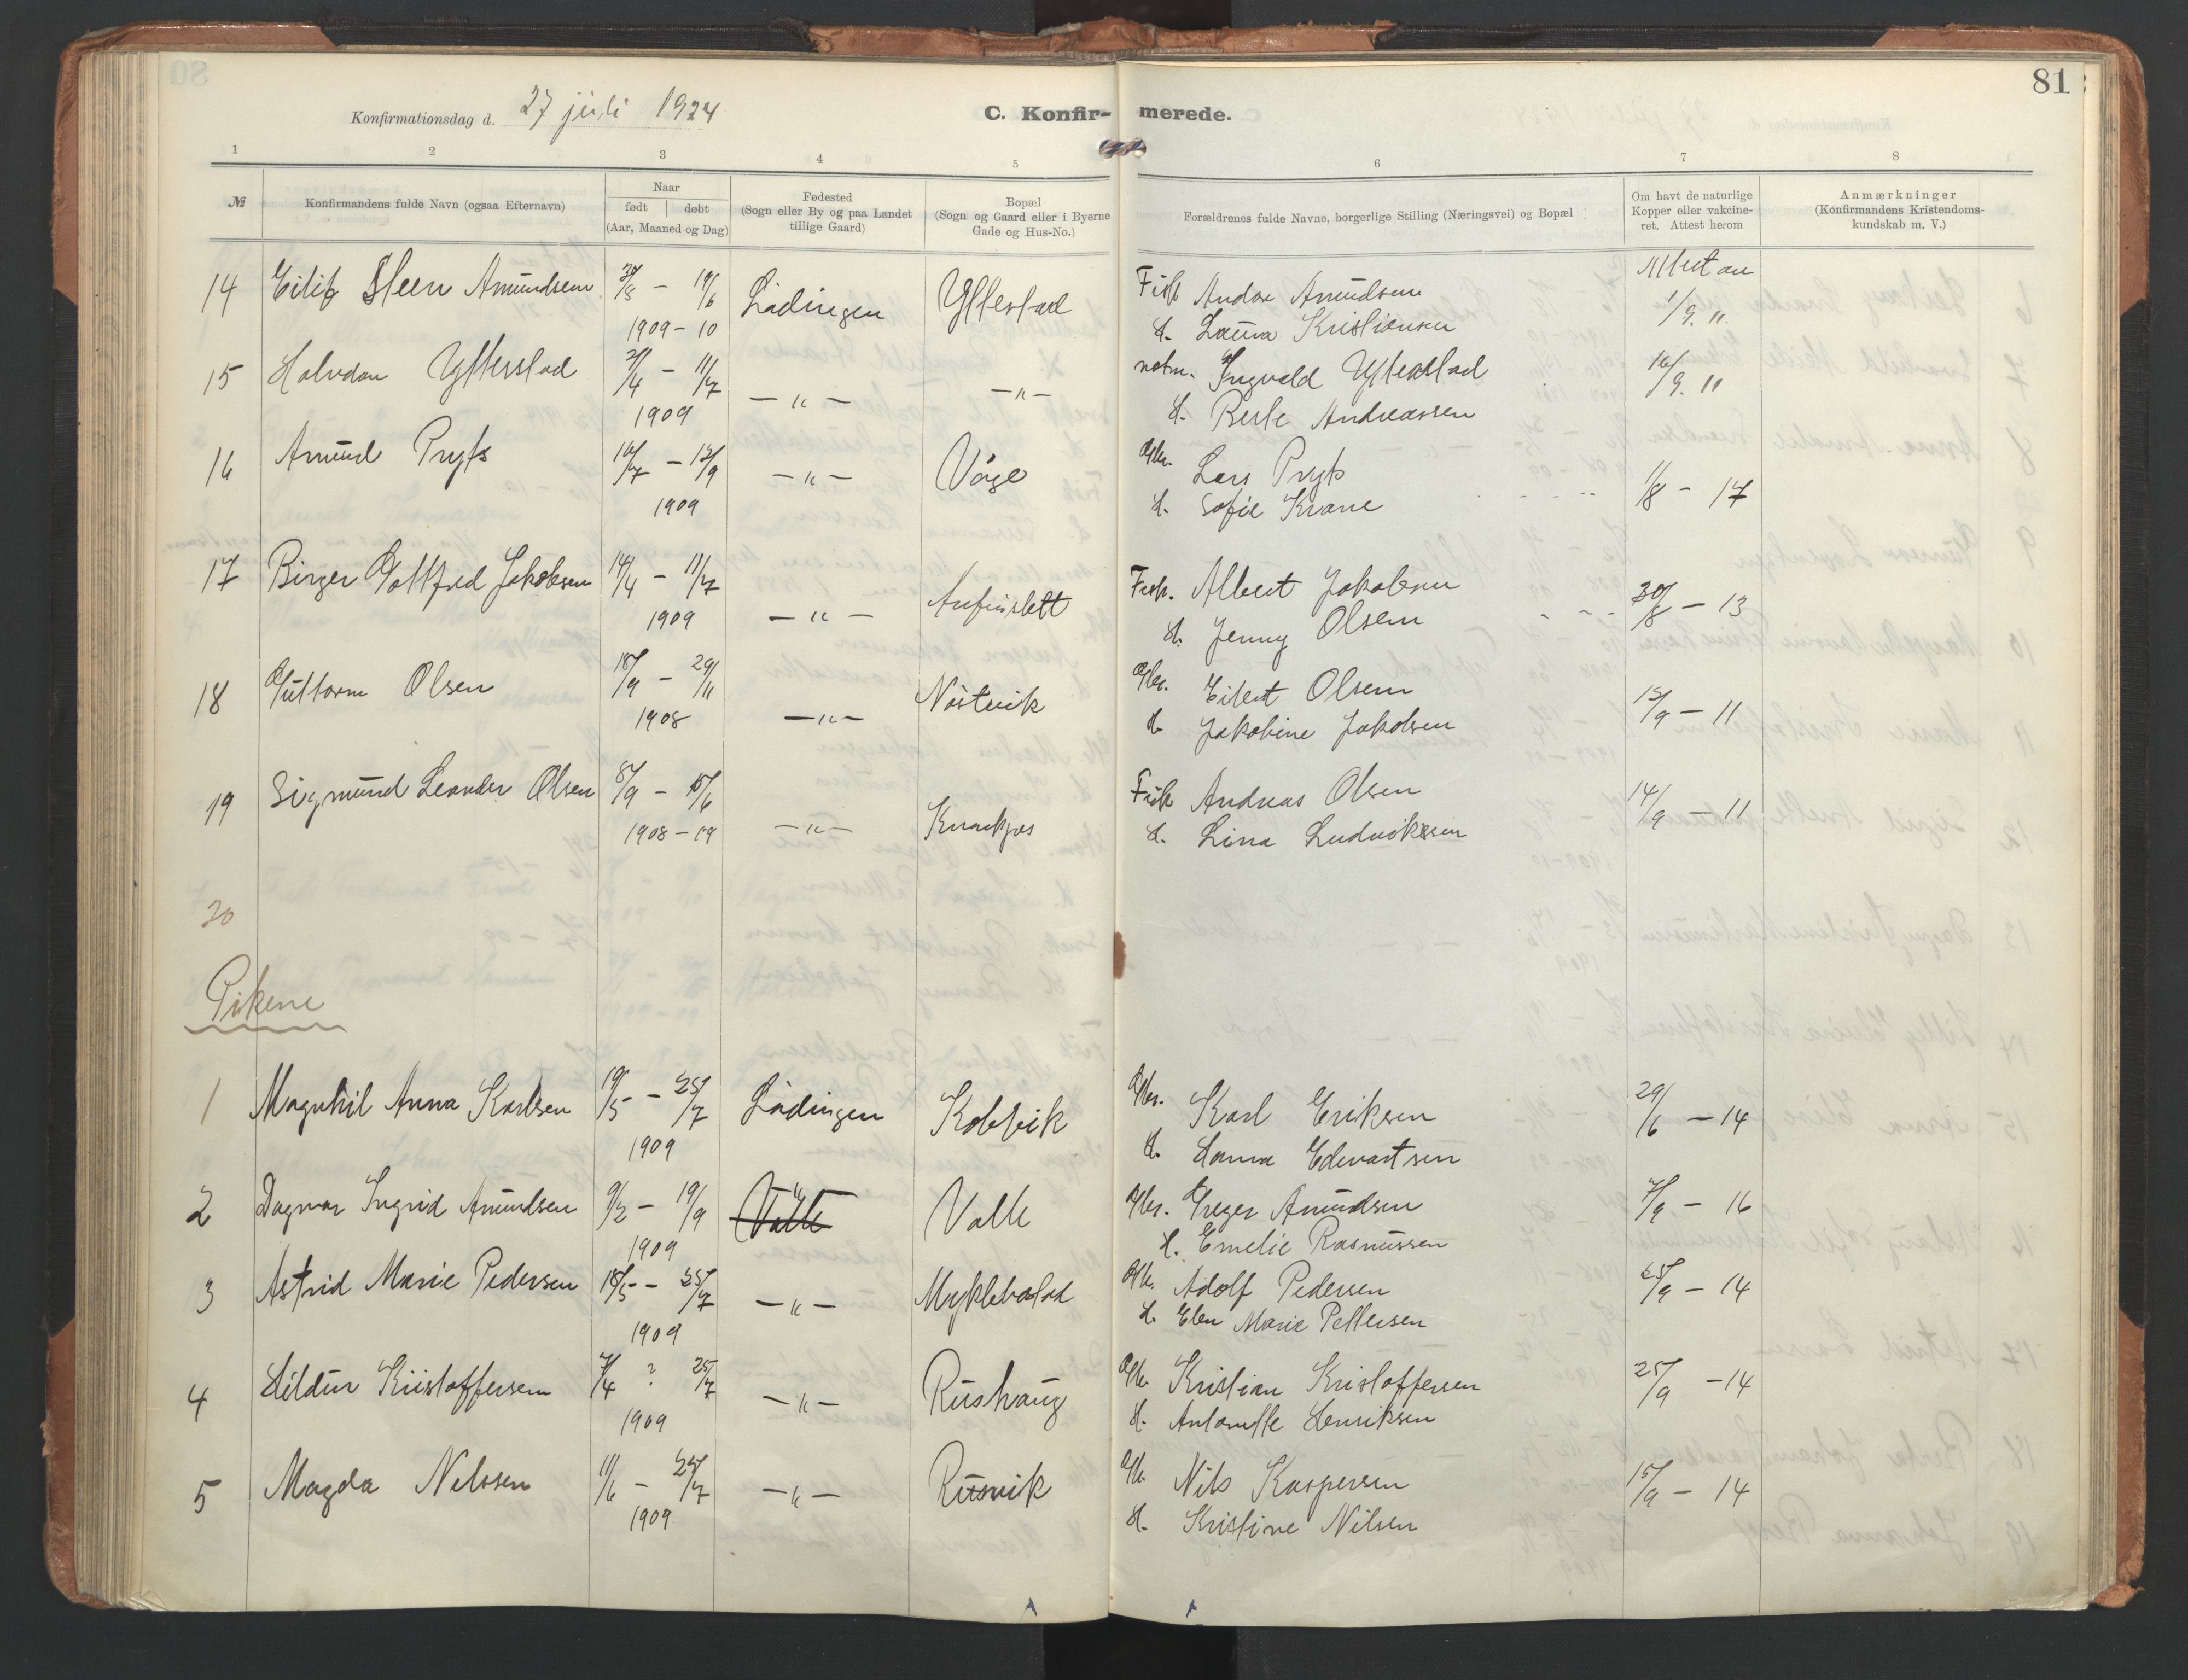 81
Konfirmationsdag d. 27 juli 1924
C. Konfir- merede.
1 2 3 4 5 6 7 8
№
Konfirmandens fulde Navn (ogsaa Efternavn)
Naar
født | døbt
(Aar, Maaned og Dag)
Fødested
(Sogn eller By og paa Landet
tillige Gaard)
Bopæl
(Sogn og Gaard eller i Byerne
Gade og Hus-No.)
Forældrenes fulde Navne, borgerlige Stilling (Næringsvei) og Bopæl
Om havt de naturlige
Kopper eller vakcine-
ret. Attest herom
Anmærkninger
(Konfirmandens Kristendoms-
kundskab m. V.)
14 Eilif Steen Amundsen — 19/6 Lødingen Fisk Andor Amundsen Attest av
1909 – 10 H. Laura Kristiansen 1/9. 11.
15 Halvdan Ytterstad — 11/7 — " — — " — Ingvald Ytterstad 16/9. 11
1909 H. Berte Andreassen
16 Amund Prytz 10/7 — 12/9 — " — Våge Gbr. Lars Prytz
1909 H. Sofie Krane 1/8 – 17
17 Birger Gottfred Jakobsen 14/4 — 11/7 Fisk. Albert Jakobsen 30/8 – 13
1909 — " — H. Jenny Olsen
18 Guttorm Olsen 18/9 — 29/11 Nøstvik Gbr. Eilert Olsen 12/9 – 11
1908 — " — H. Jakobine Jakobsen
19 Sigmund Leander Olsen — Fisk Andreas Olsen 14/9 – 11
1908 – 09 — " — H. Lina Ludviksen
20
Pikene
1 Magnhil Anna Karlsen 19/5 — 25/7 Lødingen Kobbvik Gbr. Karl Eriksen 29/6 – 14
1909 H. Hanna Edvartsen
2 Dagmar Ingrid Amundsen 9/2 — 19/9 Valle " Valle Gbr. Greger Amundsen 7/9 – 16
1909 H. Emelie Rasmussen
3 Astrid Marie Pedersen 18/5 — 25/7 — " — Myklebostad Gbr. Adolf Pedersen 25/9 – 14
1909 H. Elen Marie Pettersen
4 Hildur Kristoffersen 7/4 ? 25/7 — " — Rushaug Gbr. Kristian Kristoffersen 25/9 – 14
1909 H. Antonette Henriksen
5 Magda Nilssen 11/6 — 25/7 — " — Rusvik Gbr. Nils Kaspersen 15/9 – 14
1909 H. Kristine Nilsen